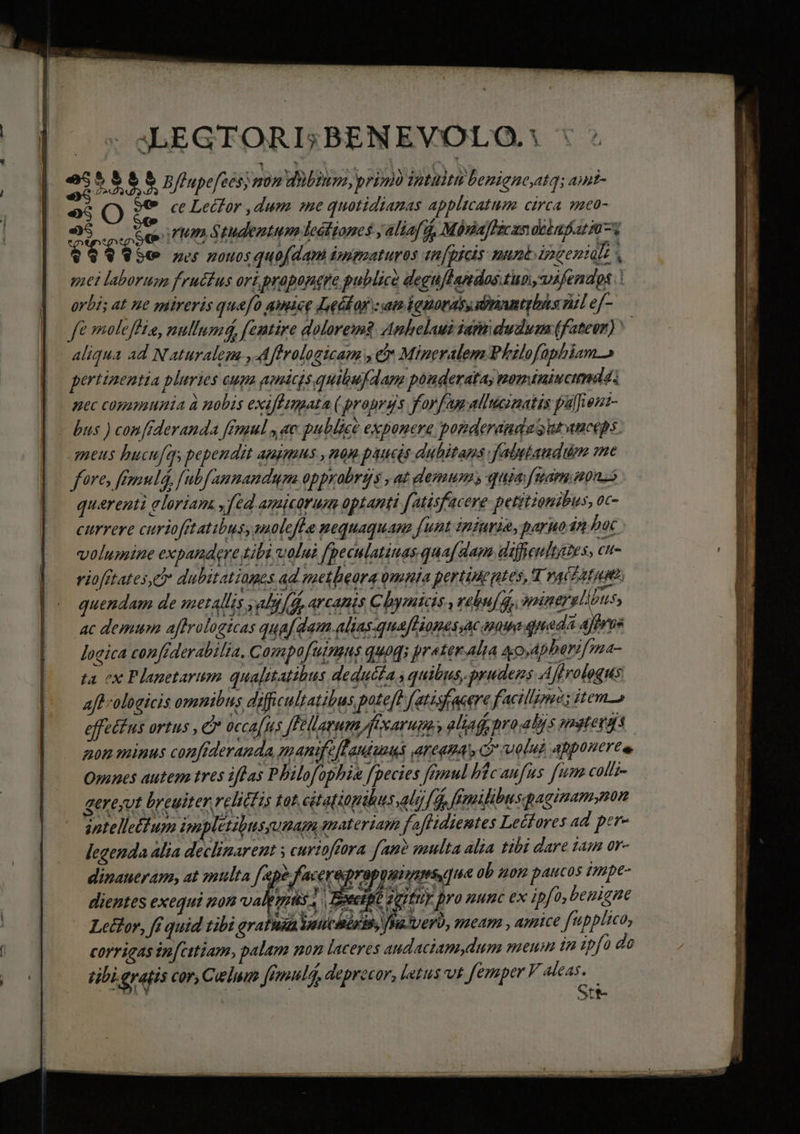 LECTORI BENEVOLO.
OBstupesces, non dubium, primo intuitu benigne, atq; ami-
ce Lector, dum me quotidianas applicatum circa meo-
rum Studentum lectiones, aliasq́, Monasticas occupatio-
nes nouos quosdam immaturos inspicis nunc ingenioli
mei laborum fructus ori proponere publicè degustandos tuo, visendos
orbi; at ne mireris quæso amice Lector: an ignoras, dubitantibus nil es-
se molestiæ, nullumq́, sentire dolorem? Anhelaui iam dudum (fateor)
aliqua ad Naturalem, Astrologicam, & Mineralem Philosophiam
pertinentia pluries cum amicis quibusdam ponderata, nominiuctudá;
nec communia à nobis existimata ( proprijs forsan allucinatis passioni-
bus ) consideranda simul, ac publicè exponere ponderanda; ut anceps
meus hucusq; pependit animus, non paucis dubitans fabulandum me
fore, simulq́, subsannandum opprobrijs, at demum, quia suam non
quærenti gloriam, sed amicorum optanti satisfacere petitionibus, oc-
currere curiositatibus, molestæ nequaquam sunt iniuriæ, paruo in hoc
volumine expandere tibi volui speculatiuas quasdam difficultates, cu-
riositates, & dubitationes ad metheora omnia pertinentes, Tractatum
quendam de metallis, alijsq́, arcanis Chymicis, rebusq́, mineralibus,
ac demum astrologicas quasdam alias quæstiones, ac noua quædã astros
logica considerabilia, Composuimus quoq; præter alia 40, aphorisma-
ta ex Planetarum qualitatibus deducta, quibus, prudens Astrologus
astrologicis omnibus difficultatibus potest satisfacere facillimè; item
effectus ortus, & occasus stellarum, fixarum, aliaq́, pro alijs materijs
non minus consideranda manifestauimus arcana, & volui apponere
Omnes autem tres istas Philosophiæ species simul hîc ausus sum colli-
gere, vt breuiter relictis tot citationibus, alijsq́, similibus paginam, non
intellectum impletibus, vnam materiam fastidientes Lectores ad per-
legenda alia declinarent; curiosiora sanè multa alia tibi dare iam or-
dinaueram, at multa sæpè facere proponimus, quæ ob non paucos impe-
dientes exequi non valemus; Excipe igitur pro nunc ex ipso, benigne
Lector, si quid tibi gratum inueneris, sin verò, meam, amice supplico,
corrigas inscitiam, palam non laceres audaciam, dum meum in ipso do
tibi gratis cor, Cælum simulq́, deprecor, lætus vt semper Valeas.
Stt-